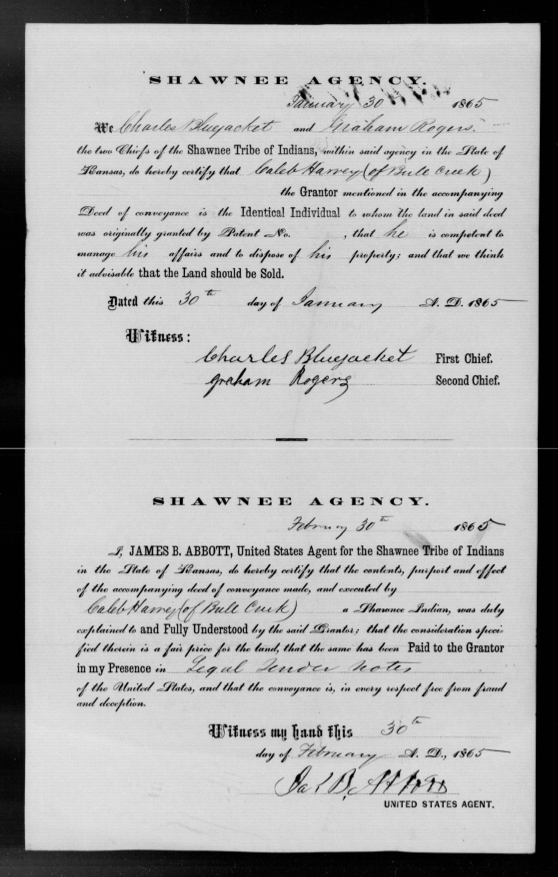 SHAWNEE AGENCY.
January 30 1865
We Charles Bluejacket and Graham Rogers.
the two Chiefs of the Shawnee Tribe of Indians, within said agency in the State of
Kansas, do hereby certify that Caleb Harvey (of Bull Creek)
the Grantor mentioned in the accompanying
Deed of conveyance is the Identical Individual to whom the land in said deed
was originally granted by Patent No. , that he is competent to
manage his affairs and to dispose of his property; and that we think
it advisable that the Land should be Sold.
Dated this 30th day of January A. D. 1865
Witness:
Charles Bluejacket First Chief.
graham Rogers Second Chief.
SHAWNEE AGENCY.
February 30th 1865
I, JAMES B. ABBOTT, United States Agent for the Shawnee Tribe of Indians
in the State of Kansas, do hereby certify that the contents, purport and effect
of the accompanying deed of conveyance made, and executed by
Caleb Harvey (of Bull Creek) a Shawnee Indian, was duly
explained to and Fully Understood by the said Grantor; that the consideration speci-
fied therein is a fair price for the land, that the same has been Paid to the Grantor
in my Presence in Legal Tender Notes
of the United States, and that the conveyance is, in every respect free from fraud
and deception.
Witness my hand this 30th
day of February A. D., 1865
Jas B. Abbott
UNITED STATES AGENT.